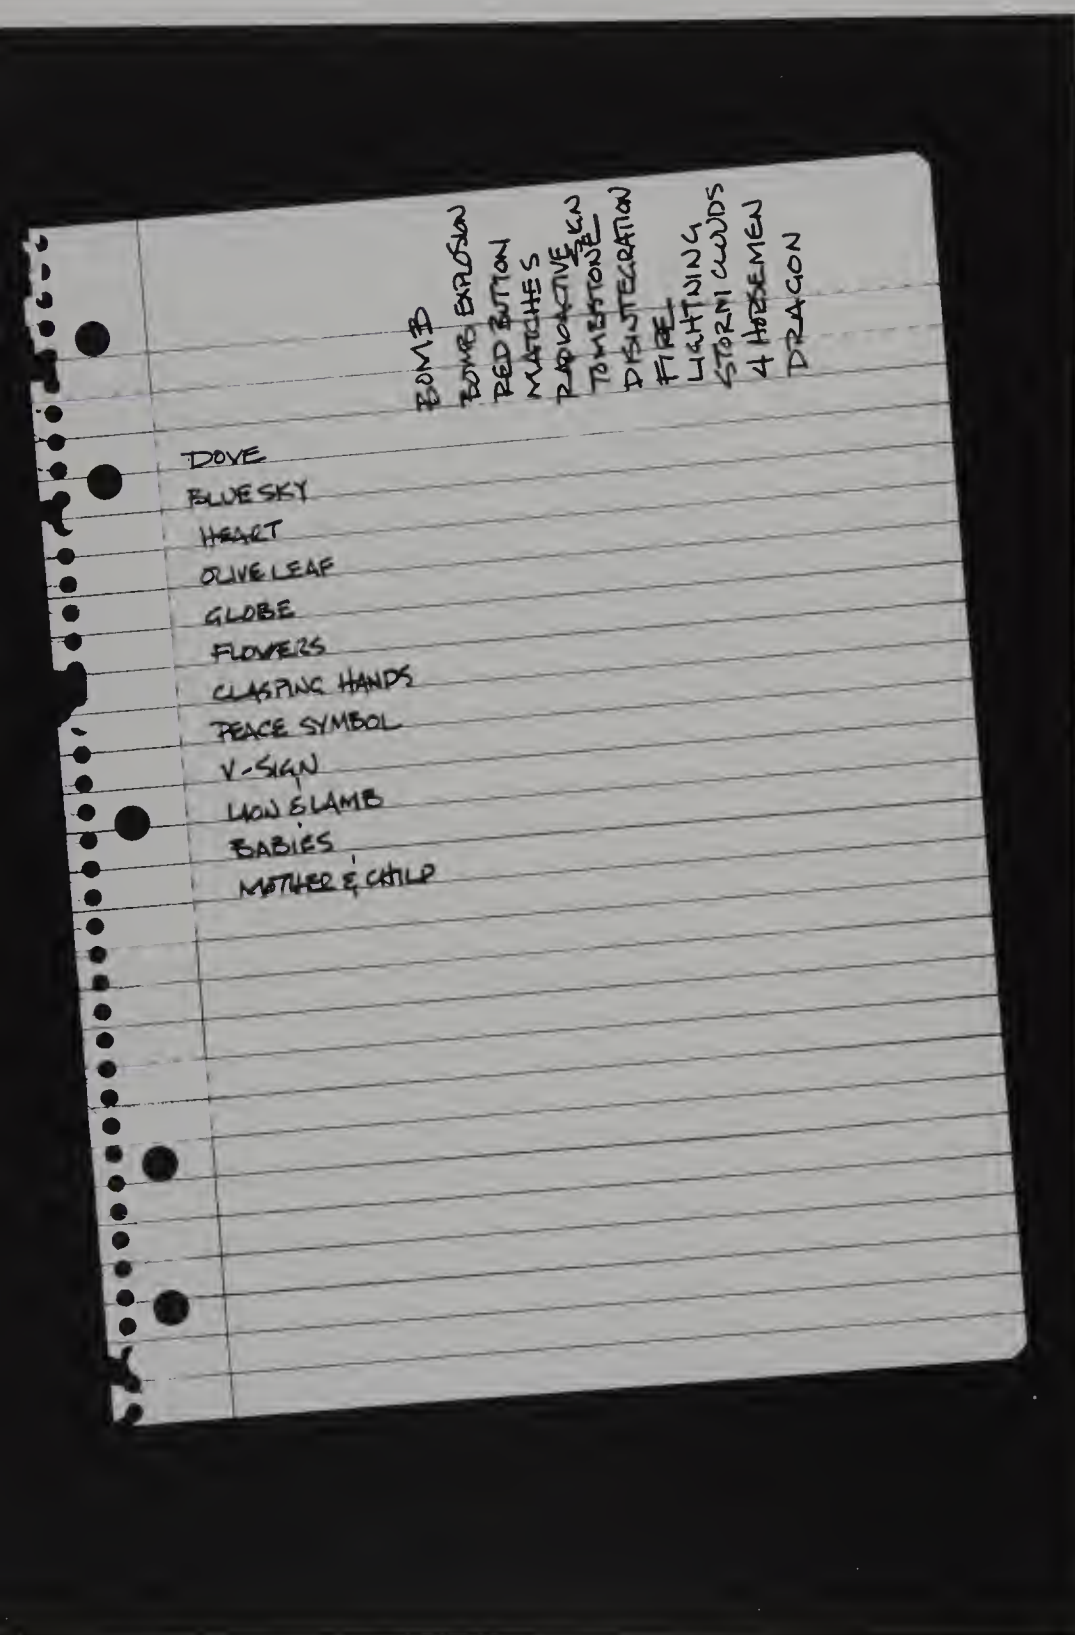 BOMB
BOMB EXPLOSION
RED BUTTON
MATCHES
RADIOACTIVE SIGN
TOMBSTONE
DISINTEGRATION
FIRE
LIGHTNING
STORM CLOUDS
4 HORSEMEN
DRAGON
DOVE
BLUE SKY
HEART
OLIVE LEAF
GLOBE
FLOWERS
CLASPING HANDS
PEACE SYMBOL
V-SIGN
LION & LAMB
BABIES
MOTHER & CHILD